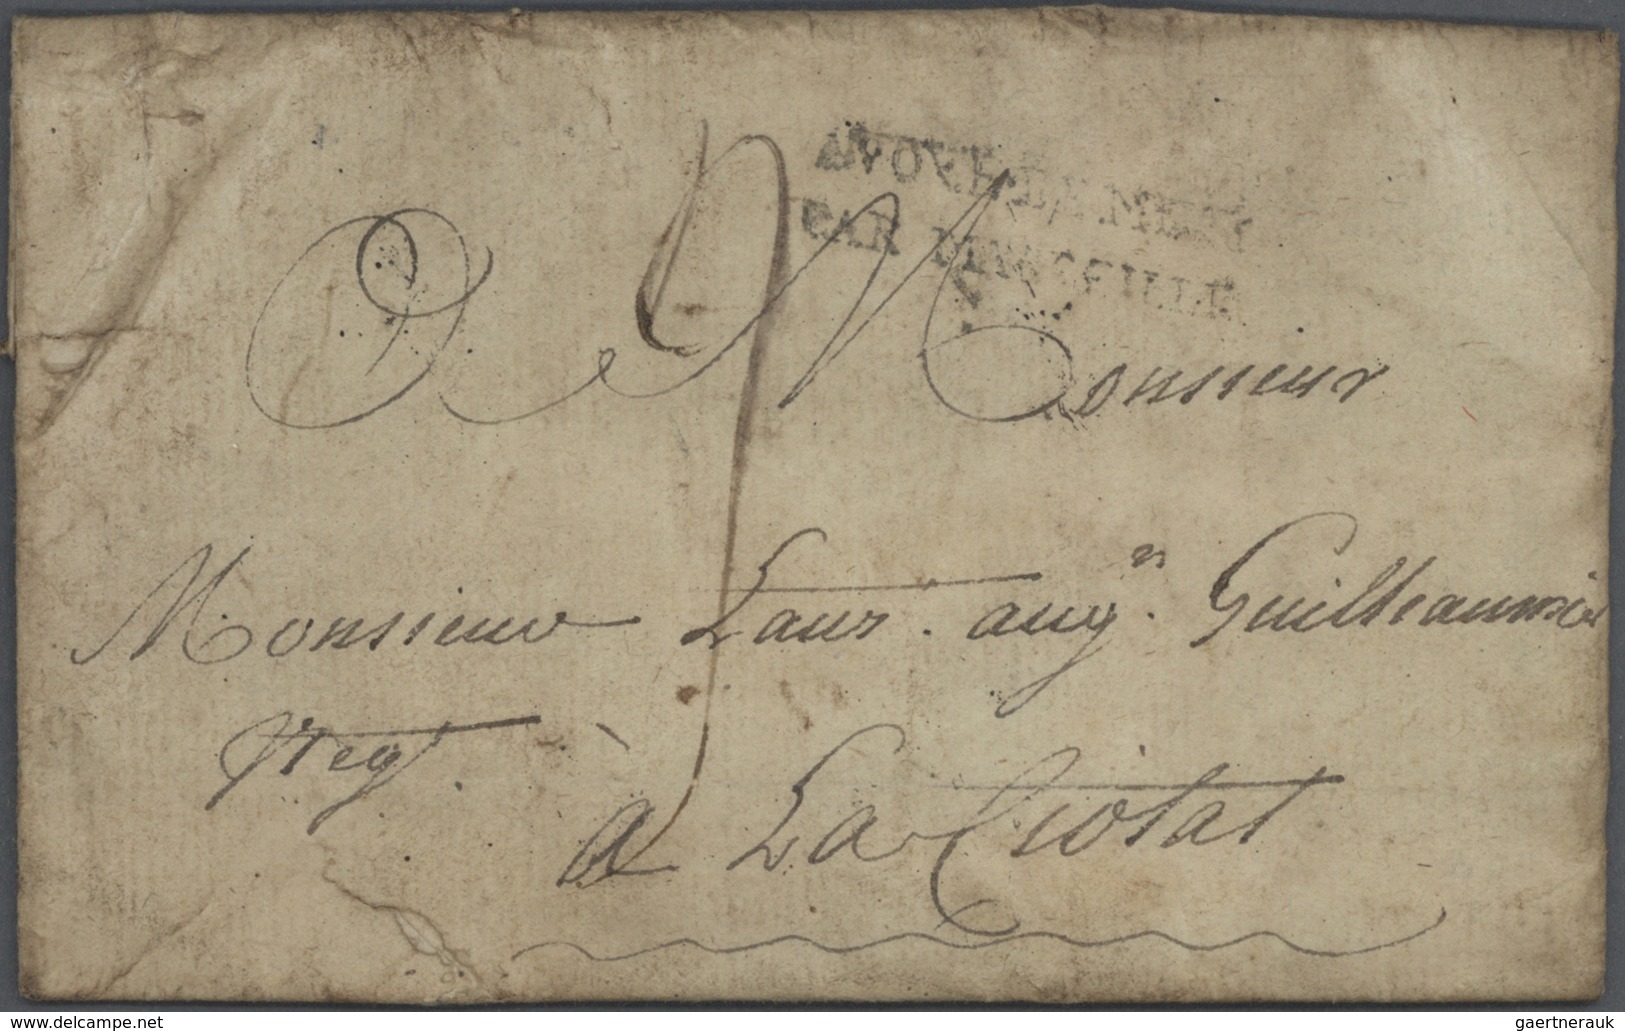 PAR MARSEILLE
A Monsieur
Monsieur Laur. augⁿ. Guilheaumier
Neg.
à La Ciotat
www.delcampe.net
gaertnerauk